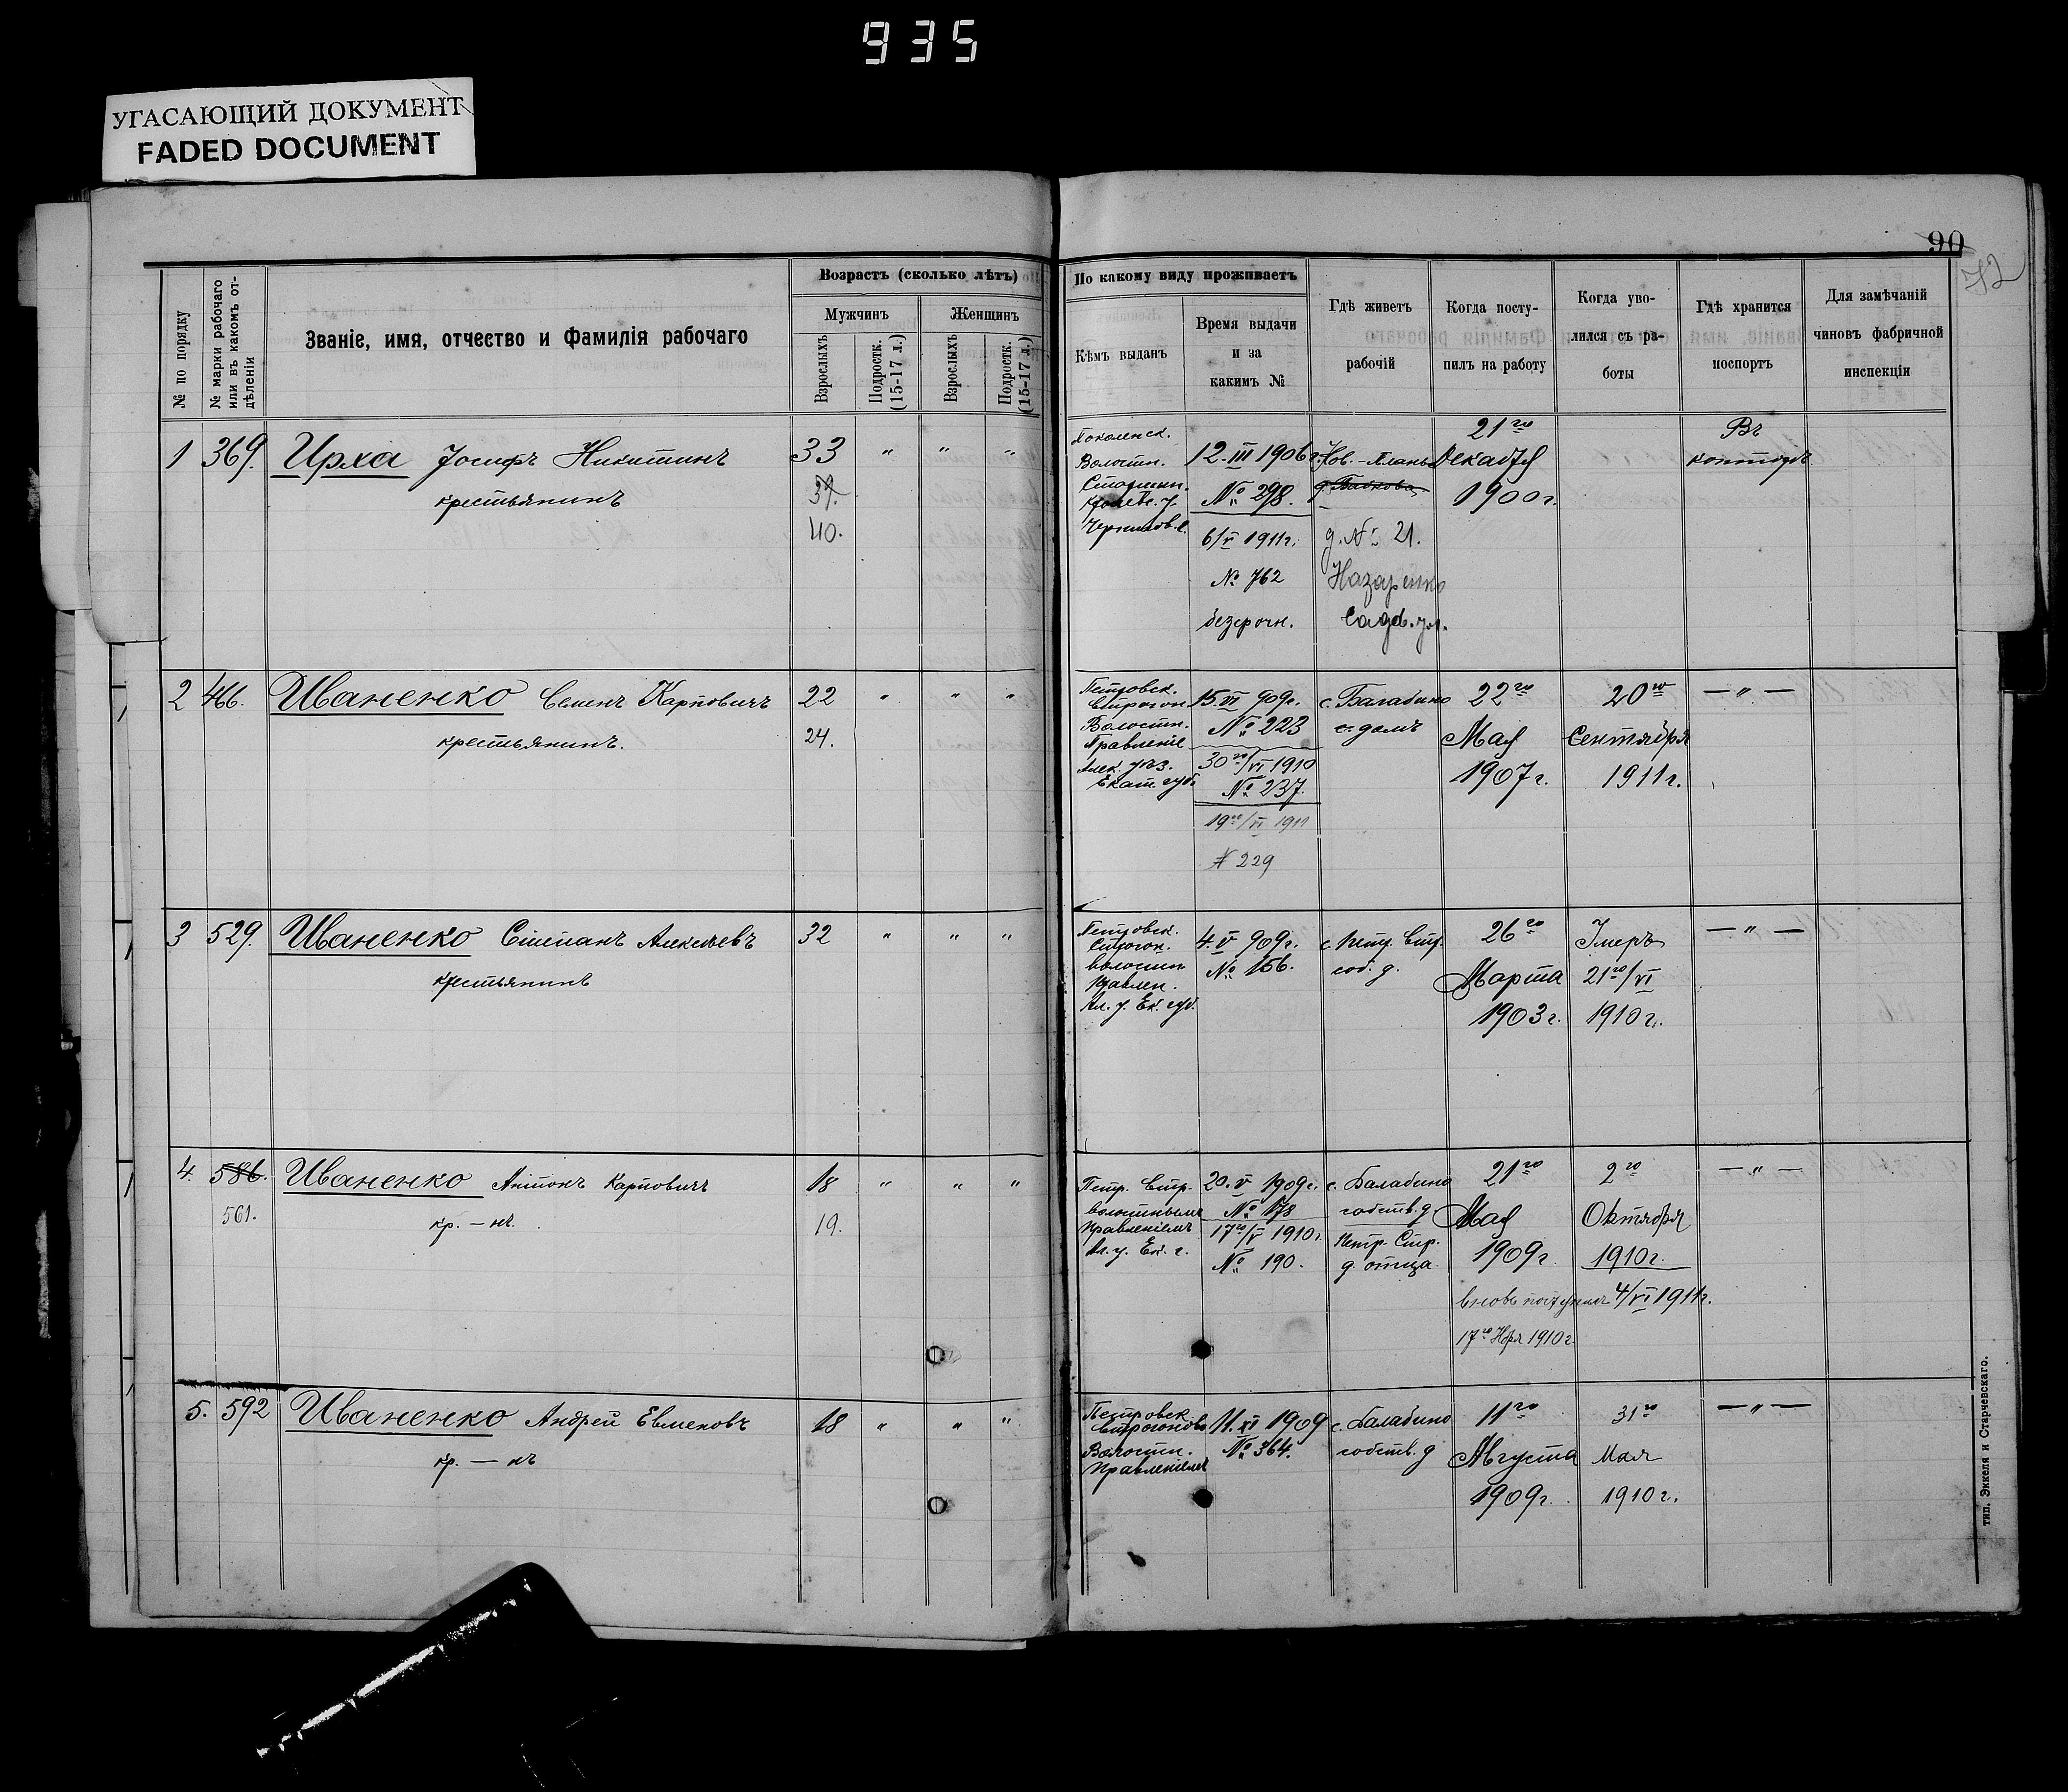 935
УГАСАЮЩИЙ ДОКУМЕНТ
FADED DOCUMENT
90
72
№ по порядку
№ марки рабочаго
или въ какомъ от-
дѣленіи
Званіе, имя, отчество и фамилія рабочаго
Возрастъ (сколько лѣтъ)
Мужчинъ
Женщинъ
Взрослыхъ
Подростк.
(15-17 л.)
Взрослыхъ
Подростк.
(15-17 л.)
По какому виду проживаетъ
Кѣмъ выданъ
Время выдачи
и за
какимъ №
Гдѣ живетъ
рабочій
Когда посту-
пилъ на работу
Когда уво-
лился съ ра-
боты
Гдѣ хранится
поспортъ
Для замѣчаній
чиновъ фабричной
инспекціи
1 369. Ирха Іосифъ Никитинъ
крестьянинъ
33 " " "
39.
40.
Волостн.
12.III 1906 г.
№ 298.
6/V 1911 г.
№ 762
безсрочн.
д. № 21.
Назаренко
Садов. ул.
21го
Декабря
1900 г.
Въ
конторѣ
2 466. Иваненко Семенъ Карповичъ
крестьянинъ.
22 " " "
24.
Петровск.
Строгон.
Волостн.
Правленіе
Алек. уѣз.
Екат. губ.
15.VI 909 г.
№ 223
30го/VI 1910
№ 237.
19го/VI 1911
№ 229
с. Балабино
с. домъ
22го
Мая
1907 г.
20го
Сентября
1911 г.
— " —
3 529. Иваненко Степанъ Алексѣевъ
крестьянинъ
32 " " "
Петровск.
Строгон.
волостн
Правлен.
Ал. у. Ек. губ.
4.V 909 г.
№ 156.
с. Петр. Стр.
соб. д.
26го
Марта
1903 г.
Умеръ
21го/VI
1910 г.
— " —
4. 586. Иваненко Антонъ Карповичъ
561.
кр. — нъ.
18 " " "
19.
Петр. Стр.
волостнымъ
Правленіемъ
Ал. у. Ек. г.
20.V 1909 г.
№ 178
17го/V 1910 г.
№ 190.
с. Балабино
собств. д
Петр. Стр.
д. отца
21го
Мая
1909 г.
вновь поступилъ
17го Нбря 1910 г.
2го
Октября
1910 г.
4/VI 1911 г.
— " —
5. 592 Иваненко Андрей Евменовъ
кр. — нъ
18 " " "
Петровск
Строгоновс
Волостн.
Правленіемъ
11.XI 1909
№ 364.
с. Балабино
собств. д
11го
Августа
1909 г.
31го
Мая
1910 г.
— " —
тип. Эккеля и Старчевскаго.